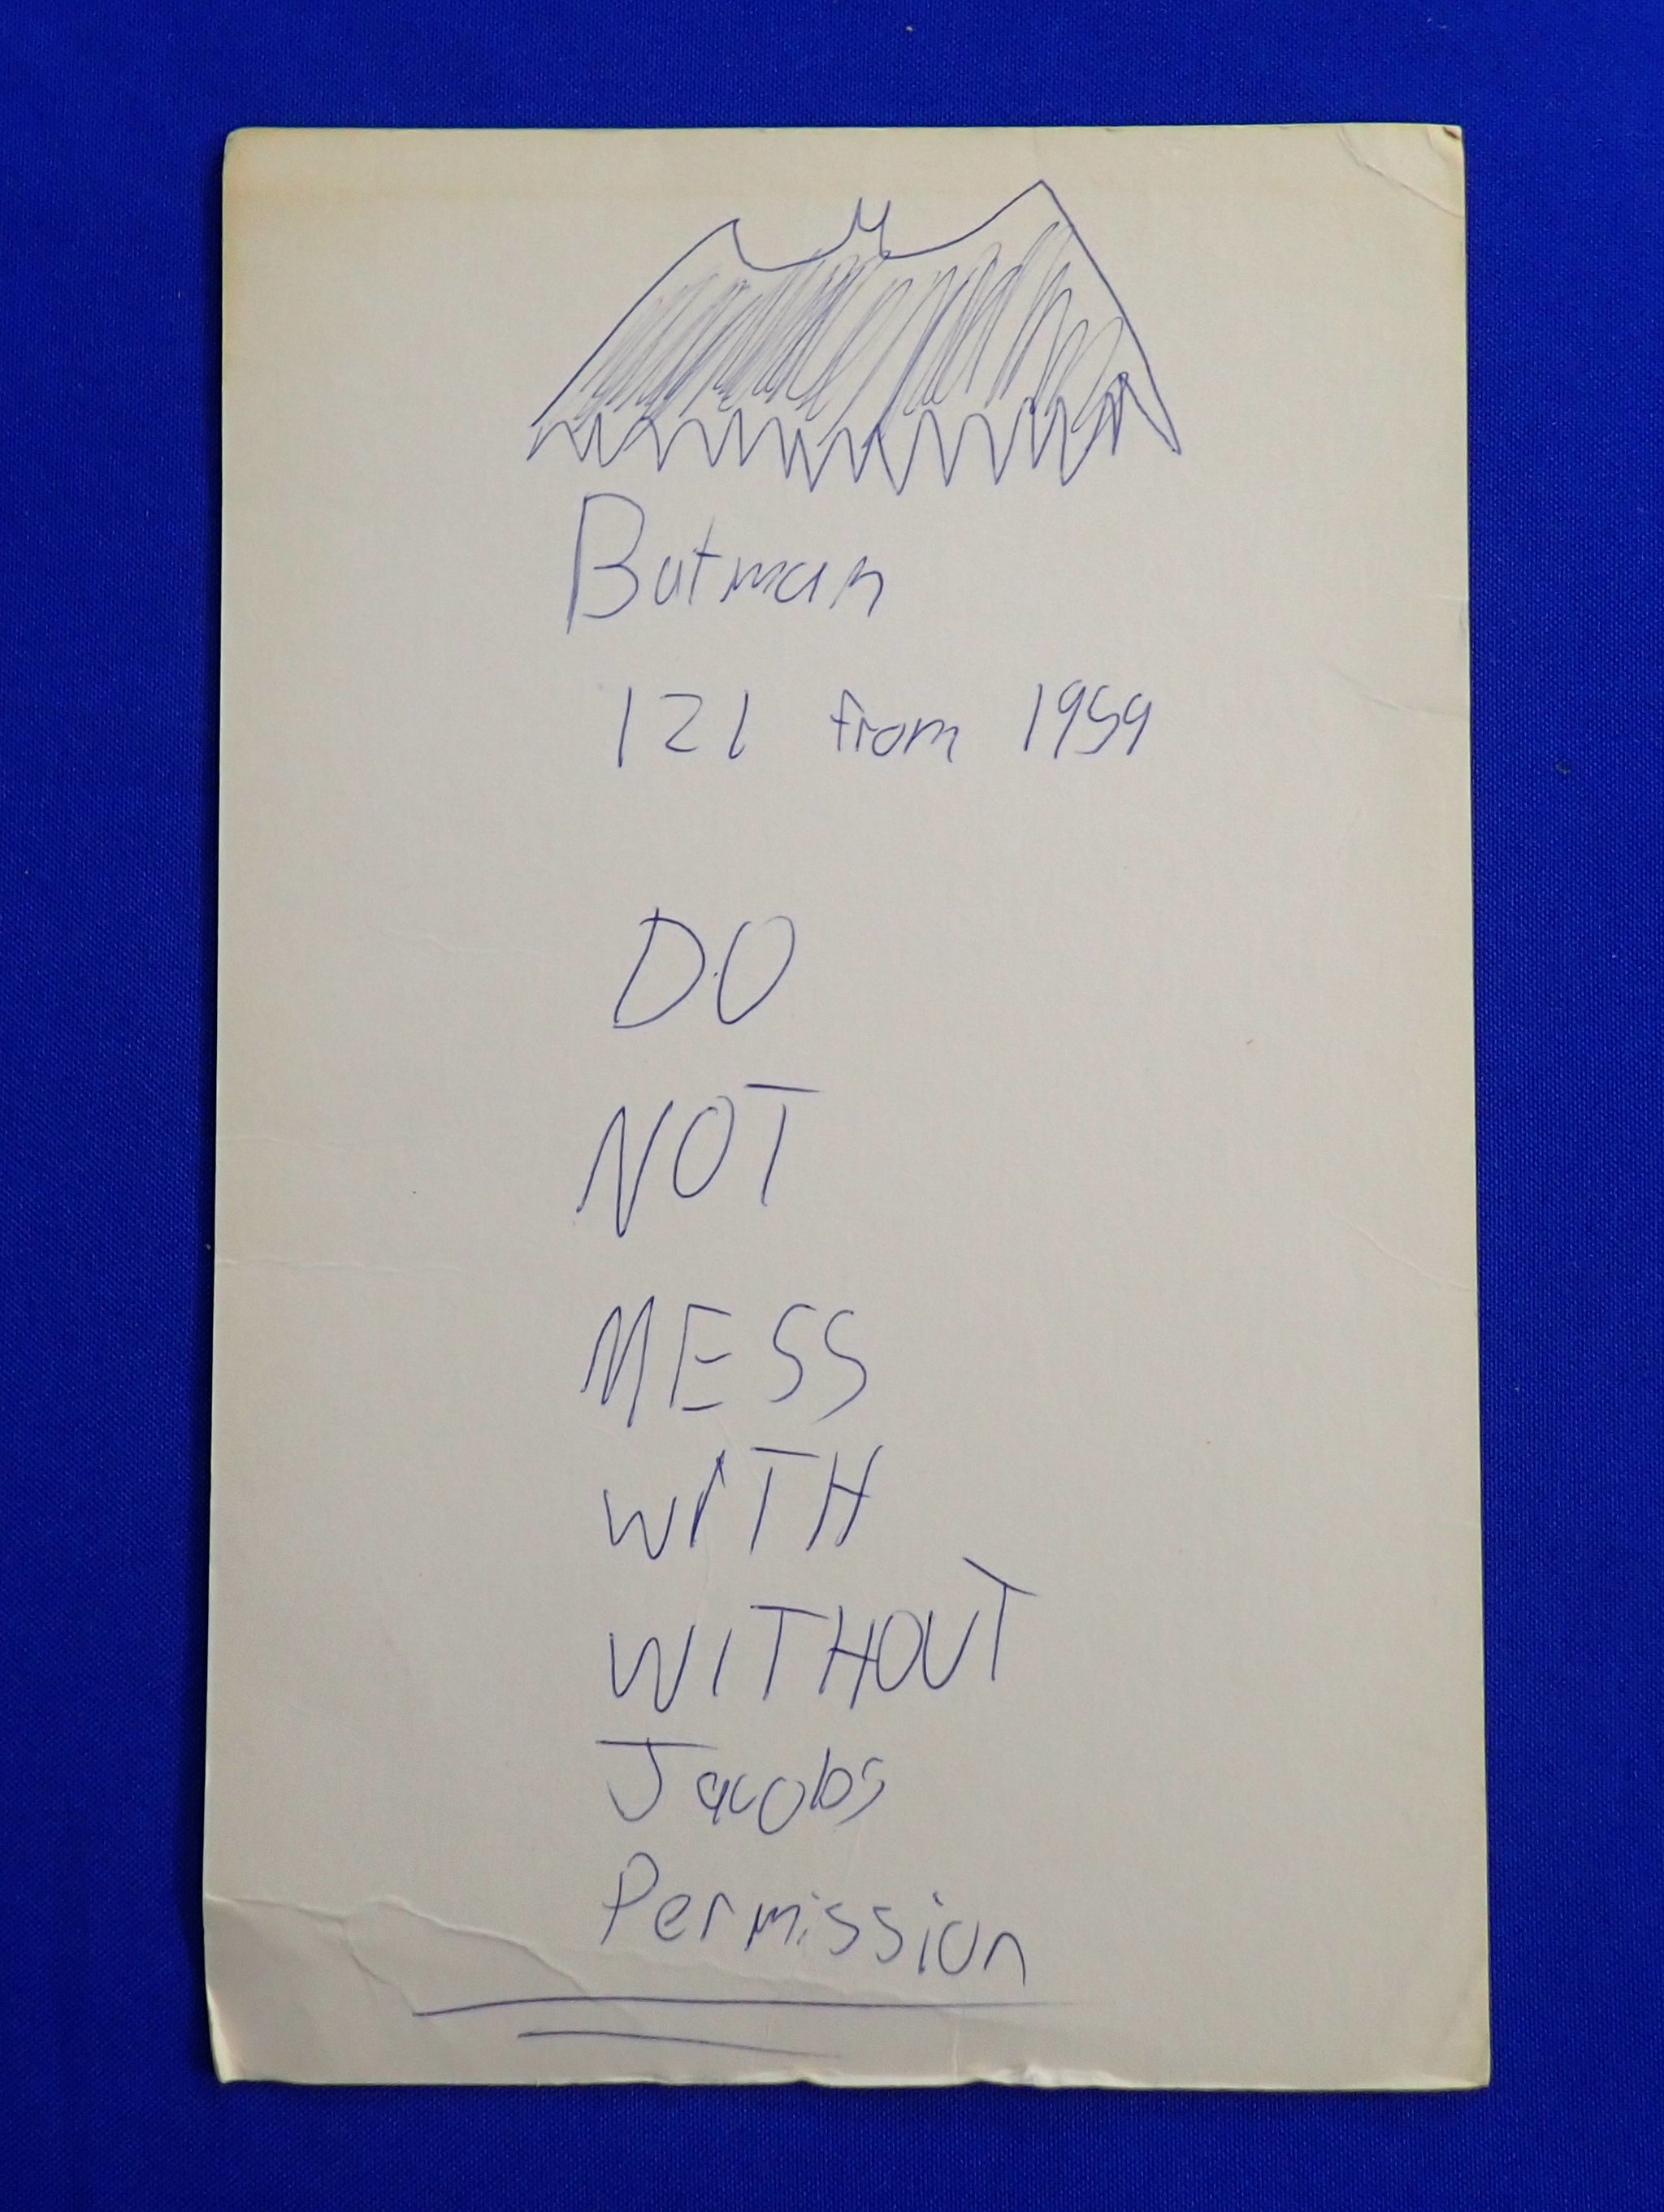 Batman
121 from 1959
DO
NOT
MESS
WITH
WITHOUT
Jacobs
Permission